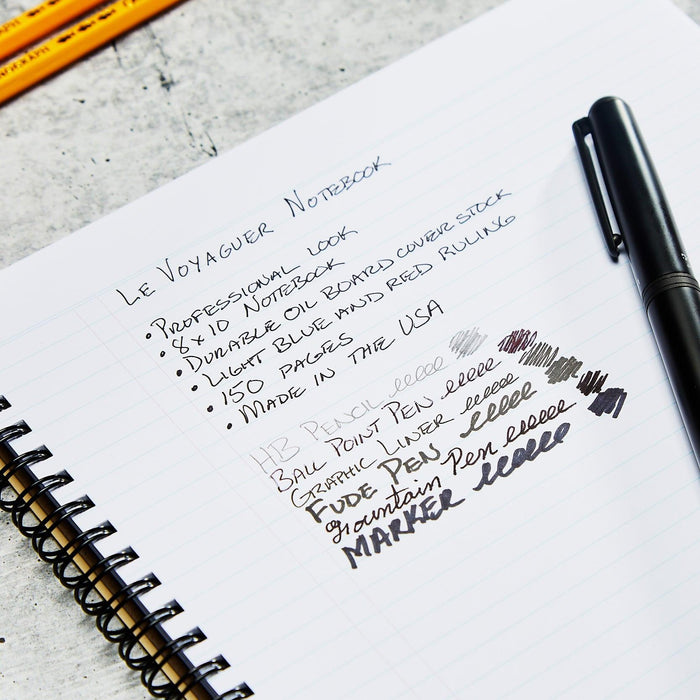 Le Voyaguer Notebook
• Professional look
• 8x10 Notebook
• Durable oil board cover stock
• Light blue and red ruling
• 150 pages
• Made in the USA
HB Pencil
Ball Point Pen
Graphic Liner
Fude Pen
Fountain Pen
Marker